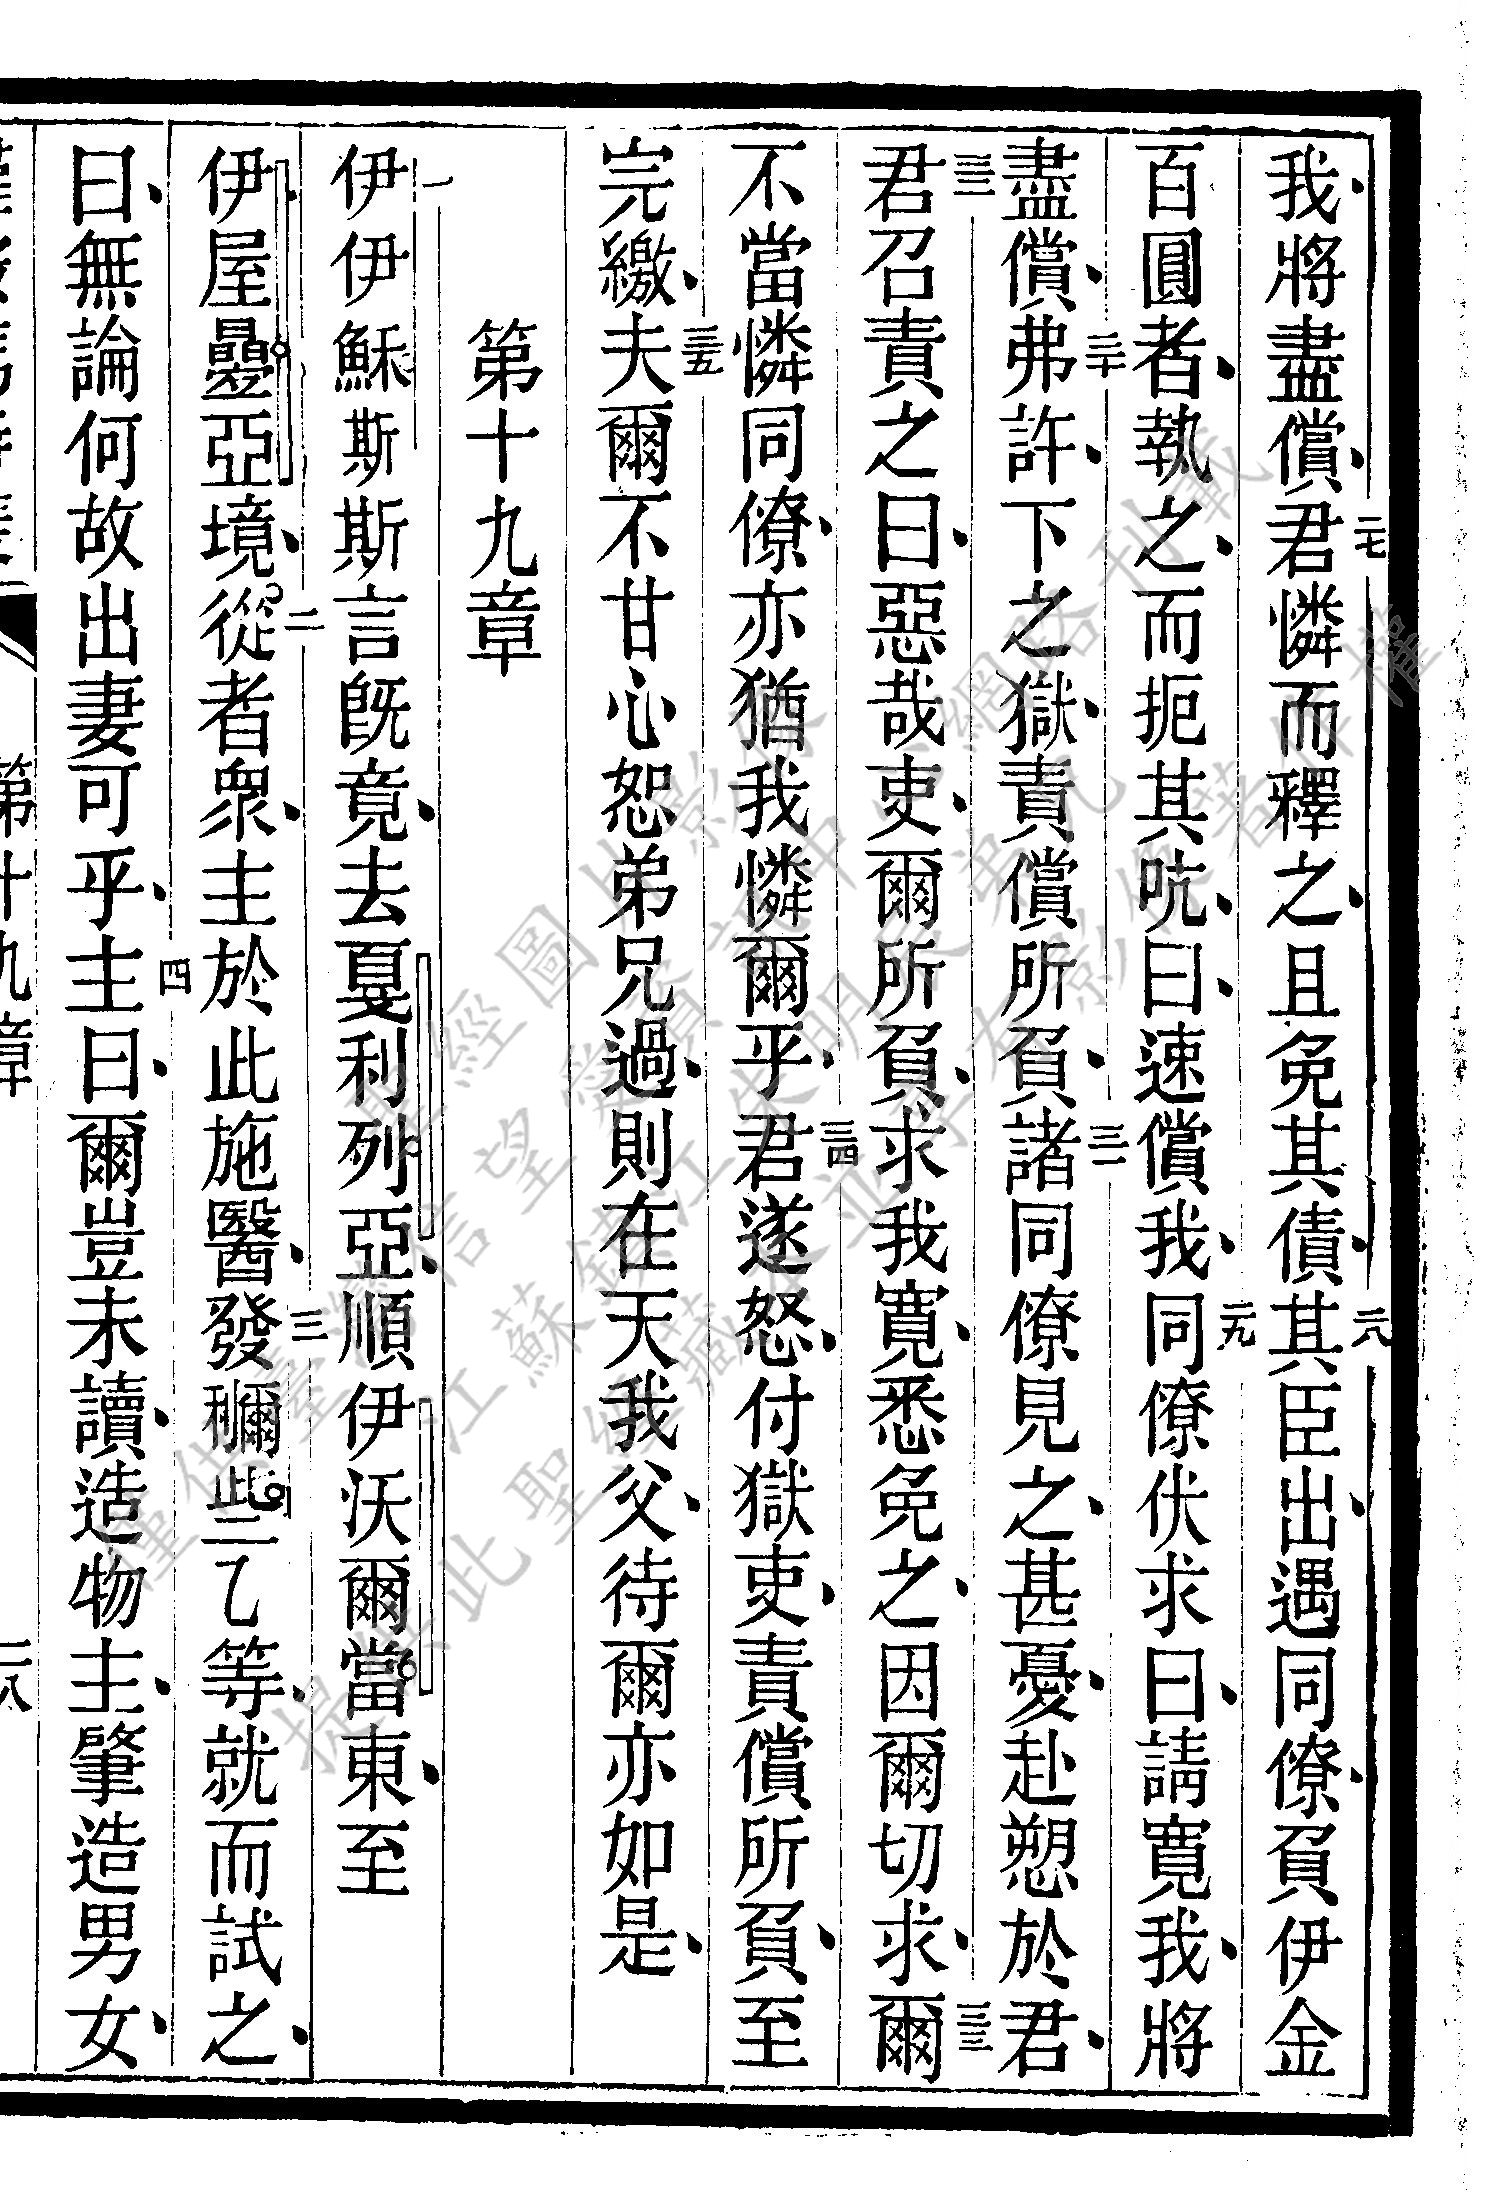 我將盡償君二七憐而釋之且免其債其二八臣出遇同僚負伊金
百圓者執之而扼其吭曰速償我同二九僚伏求曰請寬我將
盡償弗三十許下之獄責償所負諸三一同僚見之甚憂赴愬於君
君三二召責之曰惡哉吏爾所負求我寬悉免之因爾切求爾三三
不當憐同僚亦猶我憐爾乎君三四遂怒付獄吏責償所負至
完繳夫三五爾不甘心恕弟兄過則在天我父待爾亦如是
第十九章
伊一伊穌斯斯言旣竟去戛利列亞順伊沃爾當東至
伊屋亞境從二者眾主於此施醫發三等就而試之
曰無論何故出妻可乎主四曰爾豈未讀造物主肇造男女
第十九章
二八